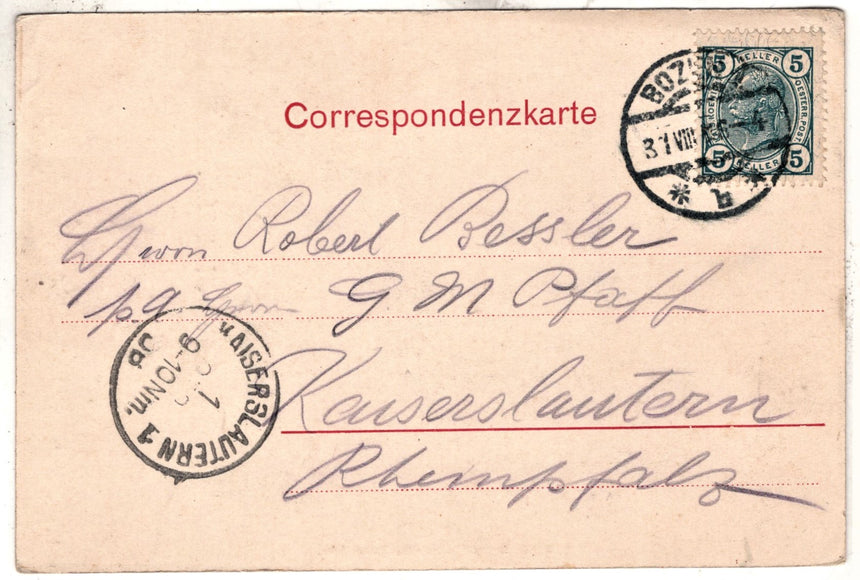 Correspondenzkarte
5 HELLER 5
OESTERR. POST
5 HELLER 5
BOZ
31 VIII 4
a
Herrn Robert Bessler
p.a. Herrn G M Pfaff
Kaiserslautern
Rheinpfalz
KAISERSLAUTERN 1
1
9-10 Nm.
06